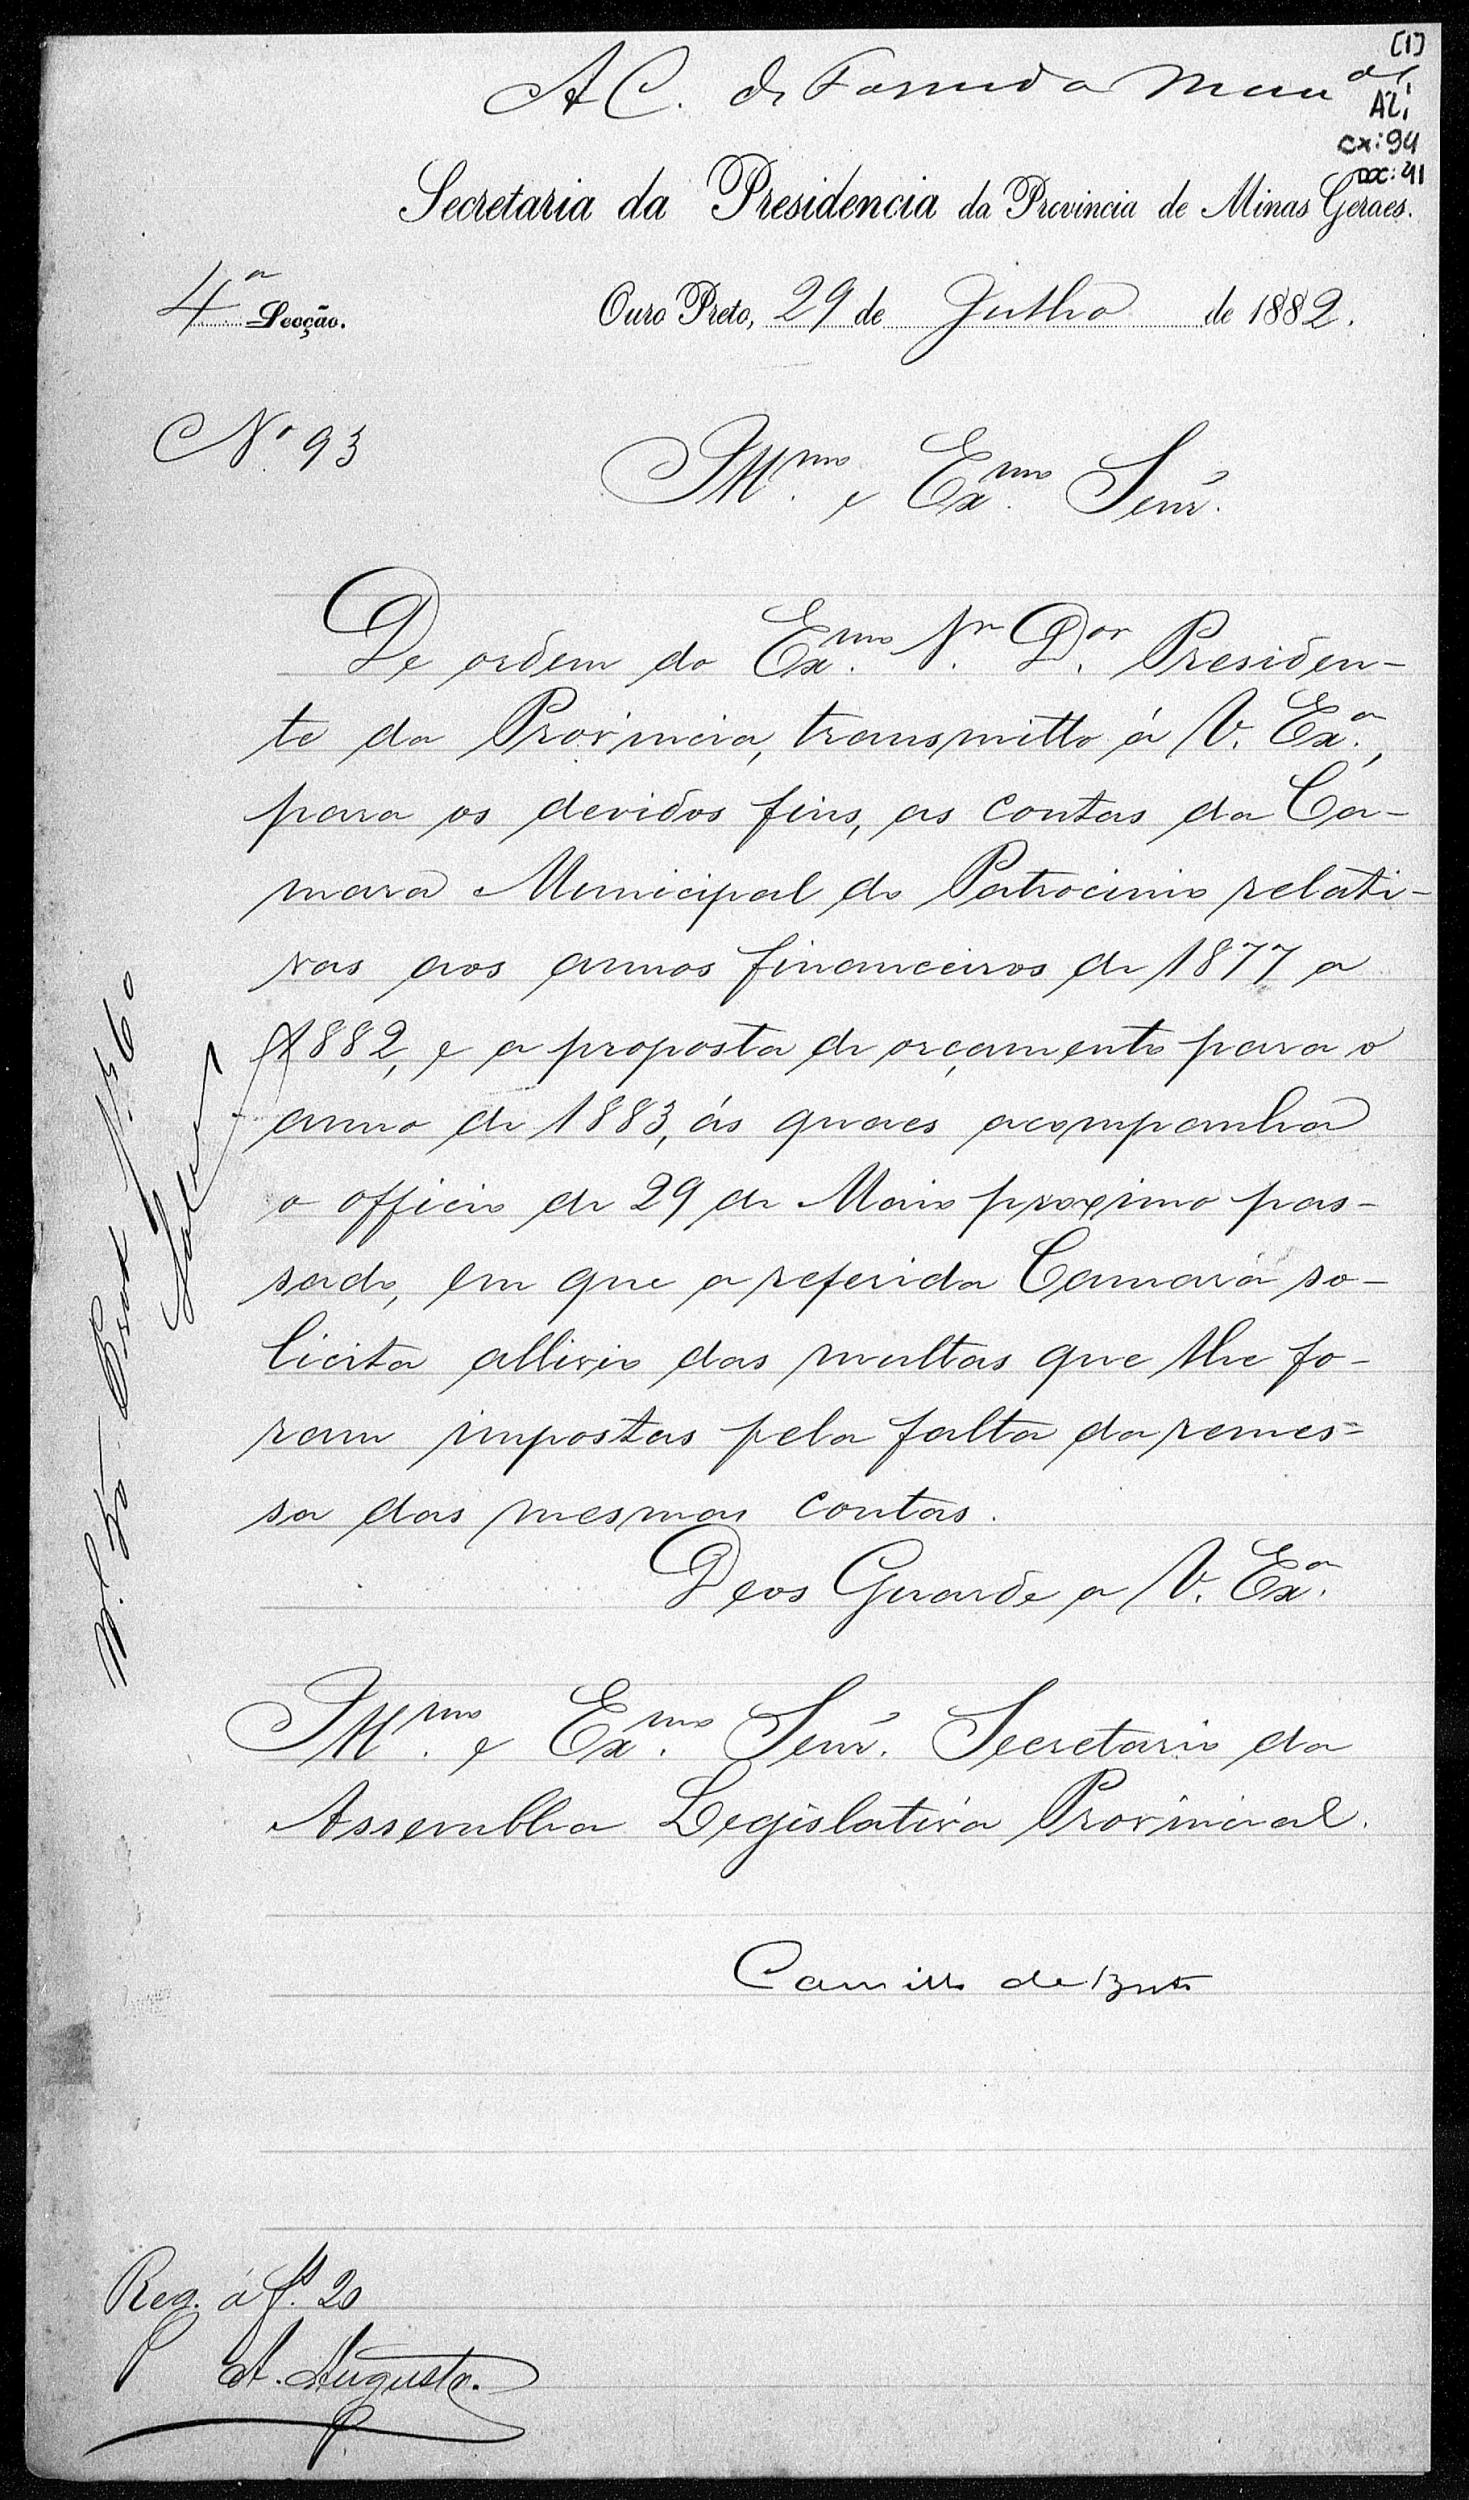 [1]
A C. de Fazenda Mun.al
AL.
cx: 94
DOC: 41
Secretaria da Presidencia da Provincia de Minas Geraes.
4ª Secção.
Ouro Preto, 29 de Julho de 1882.
Nº 93
Illmo. e Exmo. Senr.
De ordem do Exmo. Sr. Dor. Presiden-
te da Provincia, transmitto á V. Exa.,
para os devidos fins, as contas da Ca-
mara Municipal do Patrocinio relati-
vas aos annos financeiros de 1877 a
1882, e a proposta de orçamento para o
anno de 1883, ás quaes acompanha
o officio de 29 de Maio proximo pas-
sado, em que a referida Camara so-
licita allivio das multas que lhe fo-
ram impostas pela falta da remes=
sa das mesmas contas.
Deos Guarde a V. Exa.
Illmo. e Exmo. Senr. Secretario da
Assemblea Legislativa Provincial.
Camillo de Brito
Reg. á fs. 20
A. Augusto.